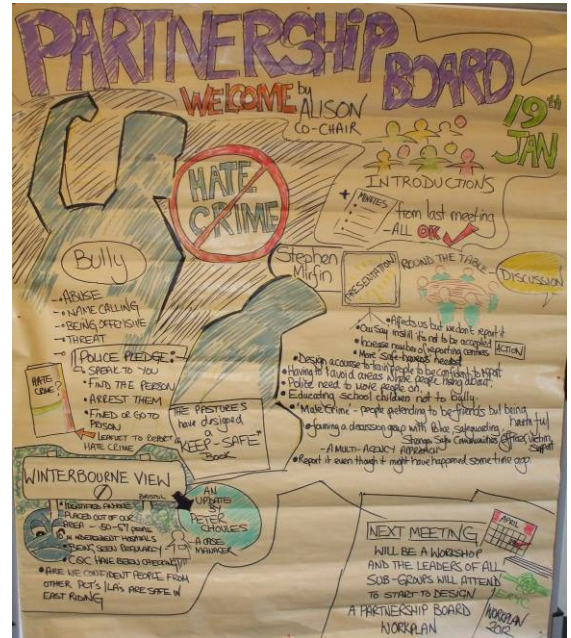 PARTNERSHIP
BOARD
WELCOME by
ALISON
CO-CHAIR
19th
JAN
HATE
CRIME
INTRODUCTIONS
+ MINUTES
from last meeting
- ALL OK
Bully
- ABUSE
- NAME CALLING
- BEING OFFENSIVE
- THREAT
Stephen
Mirfin
PRESENTATION
ROUND THE TABLE
DISCUSSION
POLICE PLEDGE:-
SPEAK TO YOU
FIND THE PERSON
ARREST THEM
FINED OR GO TO
PRISON
HATE
CRIME?
LEAFLET TO REPORT
HATE CRIME
THE PASTURES
have designed
a
"KEEP-SAFE"
BOOK
Affects us but we don't report it
it's not to be accepted
Increase number of reporting centres
ACTION
More 'safe-havens' needed
Design a course to train people to be confident to report
Having to avoid areas where people hang about.
Police need to move people on.
Educating school children not to bully.
'Mate Crime' - people pretending to be friends but being harmful
Forming a discussion group with Police, safeguarding,
Safe Communities officer, Victim
Support
- A MULTI-AGENCY APPROACH
Report it even though it might have happened some time ago.
WINTERBOURNE VIEW
BRISTOL
IDENTIFIED ANYONE
PLACED OUT OF OUR
AREA - 50-57 people
IN INDEPENDENT HOSPITALS
BEING SEEN REGULARLY
CQC HAVE BEEN CHECKING
ARE WE CONFIDENT PEOPLE FROM
OTHER PCT'S / LA'S ARE SAFE IN
EAST RIDING
AN
UPDATE
BY
PETER
CHOULES
A CASE
MANAGER
NEXT MEETING
WILL BE A WORKSHOP
AND THE LEADERS OF ALL
SUB-GROUPS WILL ATTEND
TO START TO DESIGN
A PARTNERSHIP BOARD
WORKPLAN
APRIL
WORKPLAN
2012